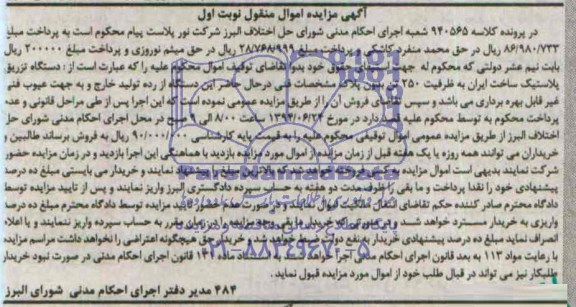 آگهی مزایده اموال منقول نوبت اول
در پرونده کلاسه ۹۴۰۵۶۵ شعبه اجرای احکام مدنی شورای حل اختلاف البرز شرکت نور پلاست پیام محکوم است به پرداخت مبلغ
۸۶/۹۸۰/۷۳۳ ریال در حق محمد منفرد کاشکی و پرداخت مبلغ ۲۸/۷۶۸/۹۹۹ ریال در حق میثم نوروزی و پرداخت مبلغ ۲۰۰۰۰۰ ریال
بابت نیم عشر دولتی که محکوم له جهت حقوق خود بدوا تقاضای توقیف اموال محکوم علیه را که عبارت است از : دستگاه تزریق
پلاستیک ساخت ایران به ظرفیت ۲۵۰ پلاک مشخصات فنی درحال حاضر این دستگاه از رده تولید خارج و به جهت عیوب فنی
غیر قابل بهره برداری می باشد و سپس تقاضای فروش آن را از طریق مزایده عمومی نموده است که این اجرا پس از طی مراحل قانونی و عدم
پرداخت محکوم به توسط محکوم علیه قصد دارد در مورخ ۱۳۹۴/۰۶/۲۴ ساعت ۸/۰۰ الی ۹ صبح در محل اجرای احکام مدنی شورای حل
اختلاف البرز از طریق مزایده عمومی اموال توقیفی محکوم علیه را به قیمت پایه کارشناسی ۹۰/۰۰۰/۰۰۰ ریال به فروش برساند طالبین و
خریداران می توانند همه روزه با یک هفته قبل از زمان مزایده از اموال مورد مزایده بازدید با هماهنگی این اجرا بازدید و در زمان مزایده حضور
شرکت نمایند بدیهی است اموال مزایده خواهد شد که بالاترین نماید و خریدار می بایستی مبلغ ده درصد
پیشنهادی خود را نقدا پرداخت و ما بقی را ظرف مدت دو هفته به حساب سپرده دادگستری البرز واریز نمایند و پس از تایید مزایده توسط
دادگاه محترم صادر کننده حکم تقاضای انتقال مالکیت اموال نمایند و در صورت عدم تایید مزایده توسط دادگاه محترم مبلغ ده درصد
واریزی به خریدار مسترد خواهد شد و در صورتی که خریدار مابقی وجه مزایده را در زمان مقرر به حساب سپرده واریز ننمایند و یا اعلام
انصراف نماید مبلغ ده درصد پیشنهادی خریدار به نفع دولت خواهد شد و خریدار حق هیچگونه اعتراضی را نخواهد داشت مراسم مزایده
با رعایت مواد ۱۱۳ به بعد قانون اجرای احکام اجرا خواهد قانون اجرای احکام مدنی در صورت نبود خریدار
طلبکار نیز می تواند در قبال طلب خود از اموال مورد مزایده قبول نماید.
۴۸۴ مدیر دفتر اجرای احکام مدنی شورای البرز
۰۲۱-۸۸۳۴۹۶۷۰-۵